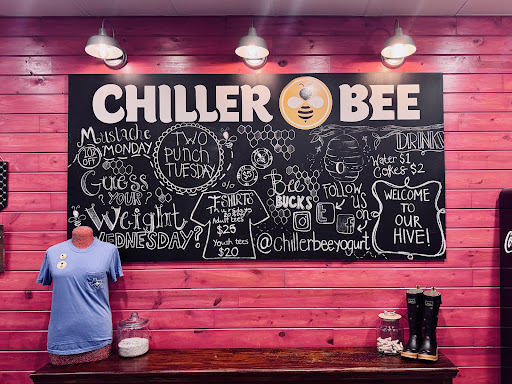 CHILLER BEE
Mustache
MONDAY
OFF
TWO
PUNCH
TUESDAY
Guess
?YOUR?
Weight
WEDNESDAY?
T-SHIRTS
Adult tees
$25
Youth tees
$20
Bee
BUCKS
FOLLOW
us
on
@chillerbeeyogurt
DRINKS
Water $1
Cokes $2
WELCOME
TO
OUR
HIVE!